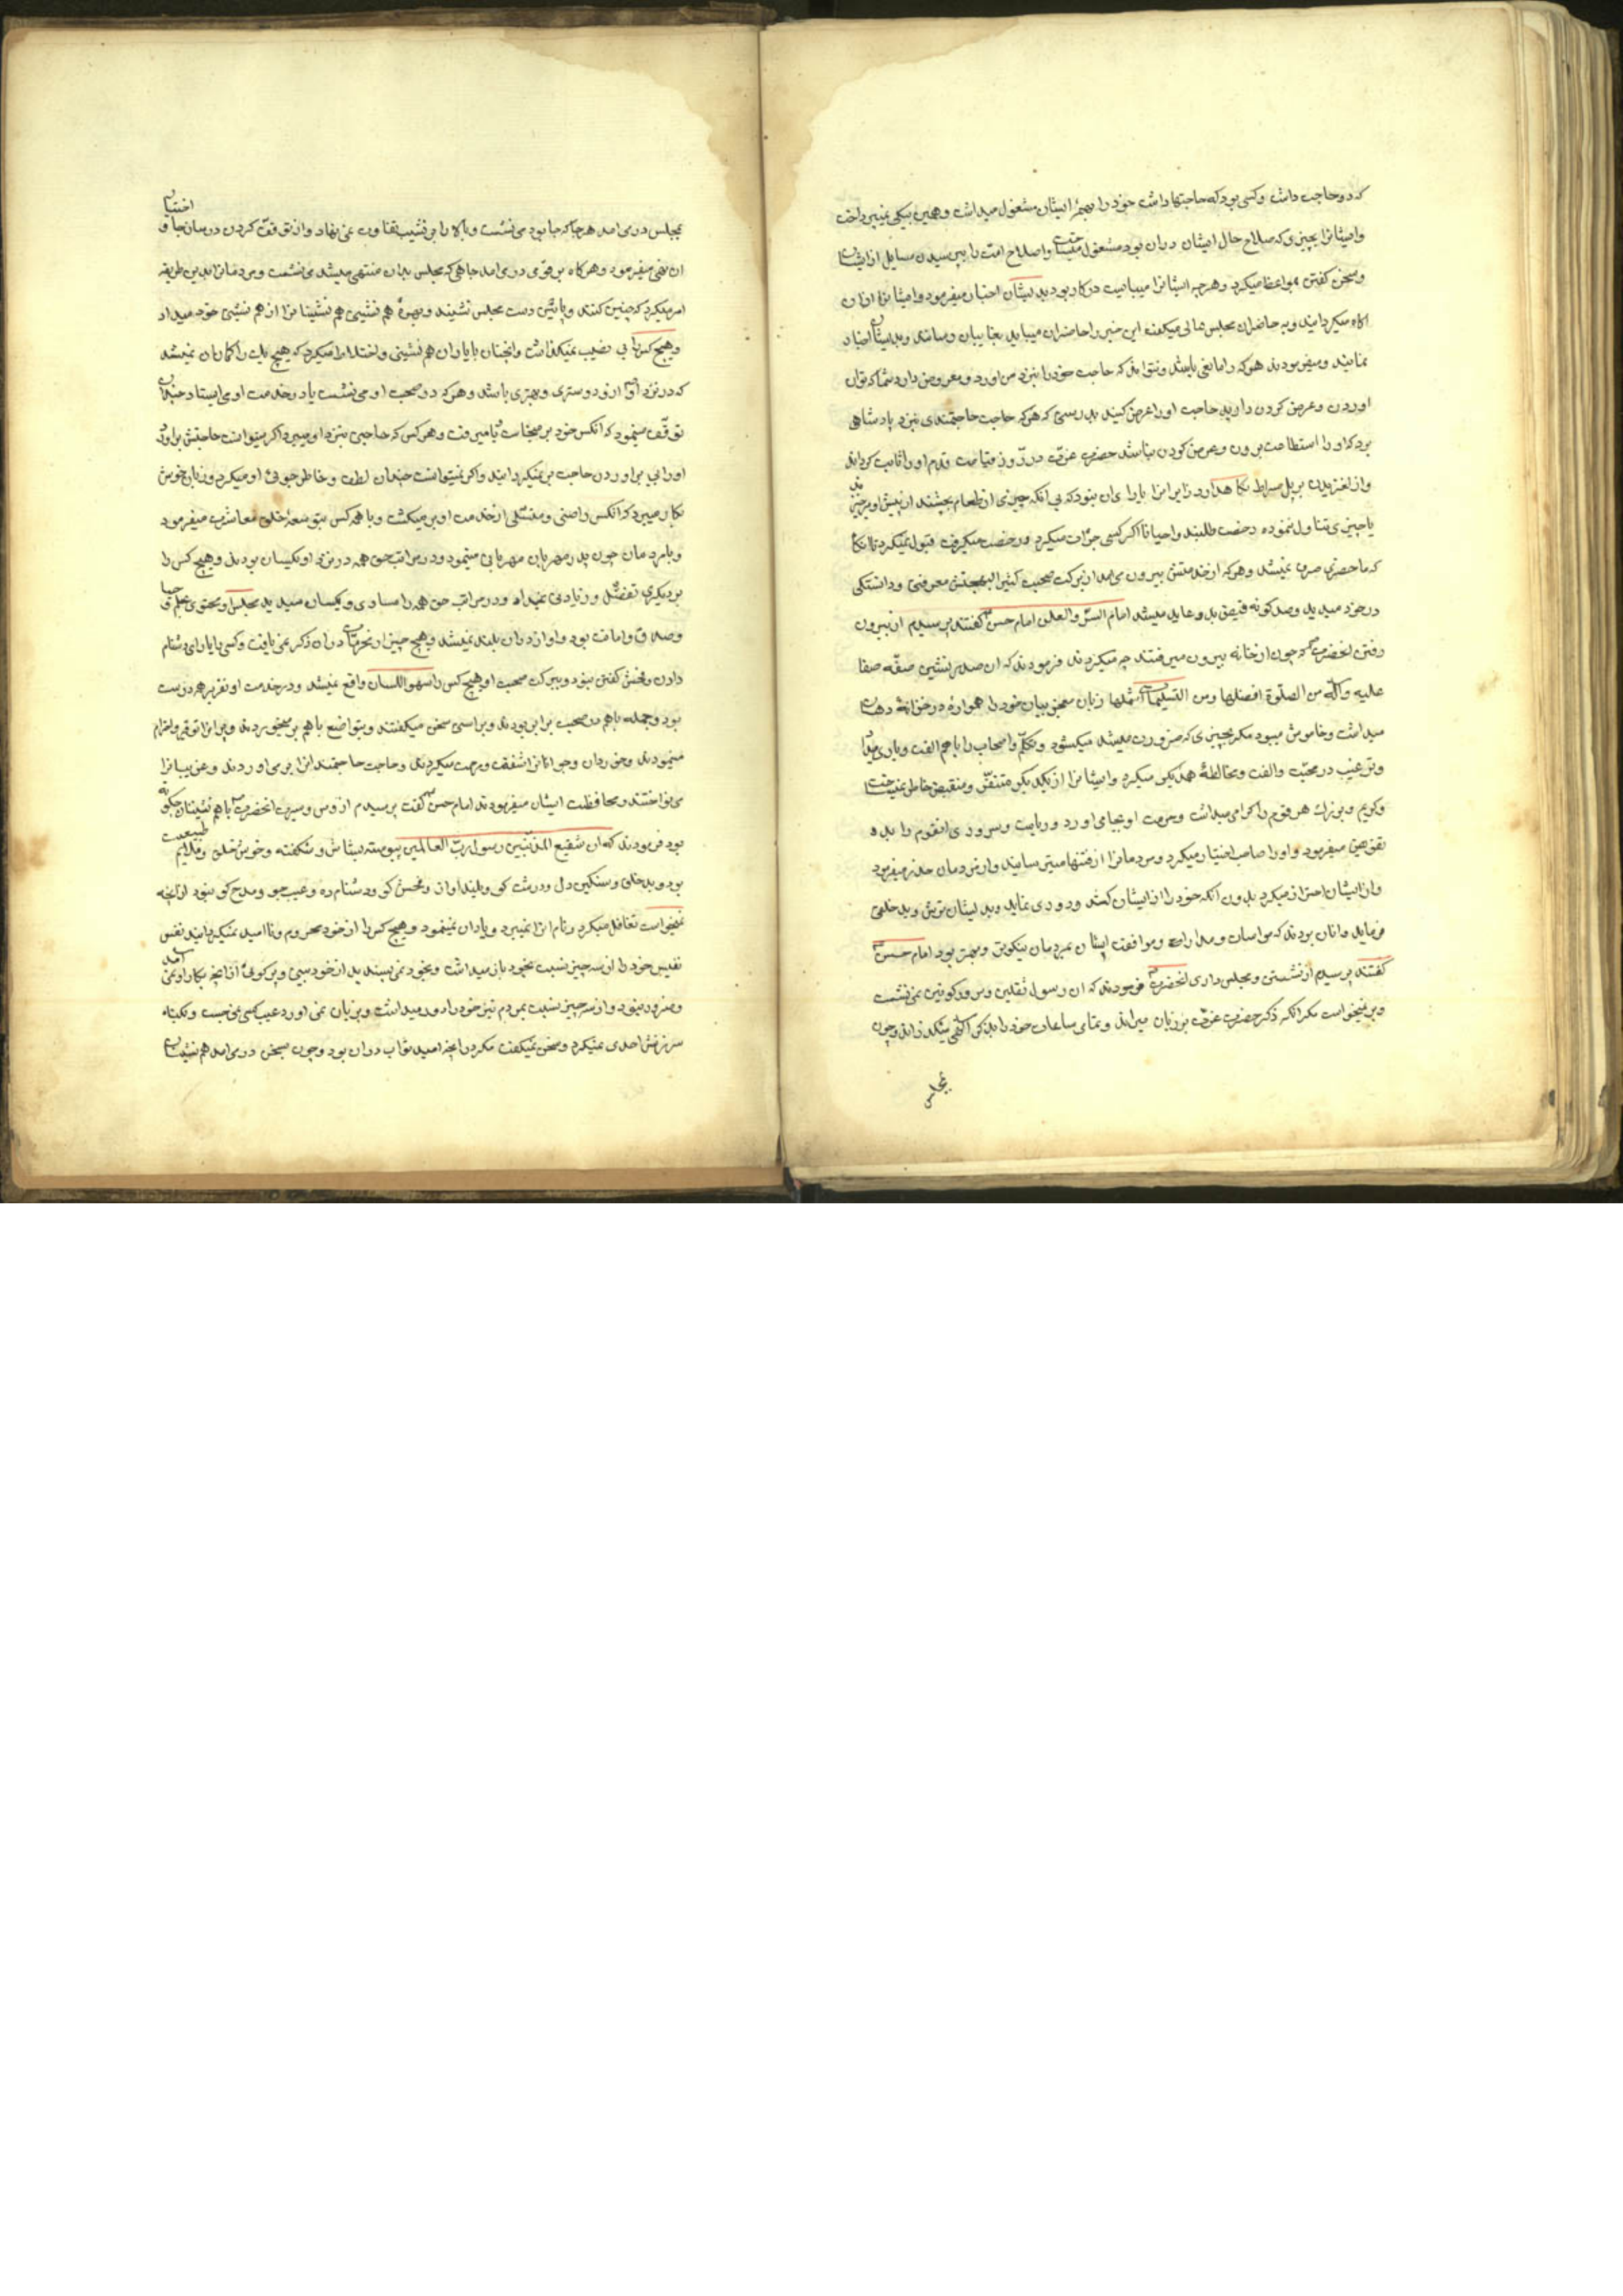 که دو حاجت داشت و کسی بود که حاجتها داشت خود را بهمهٔ ایشان مشغول میداشت و همین بیکی نمیپرداخت
وایشانرا بچیزی که صلاح حال ایشان دران بود مشغول میساخت و اصلاح امت را بپرسیدن مسایل از ایشان
وسخن گفتن بمواعظ میکرد وهرچه ایشانرا میبایست درکار بود بدیشان اخبار میفرمود وایشانرا ازان
اکاه میکردانید وبه حاضران مجلس عالی میکفت این خبر را حاضران میباید بغایبان رسانند وبدیشان اخبار
نمایند ومیفرمودند هرکه را مانعی باشد ونتواند که حاجت خود را بنزد من اورد ومعروض دارد شما که توان
اوردن وعرض کردن دارید حاجت او را عرض کنید بدرستی که هرکه حاجت حاجتمندی بنزد پادشاهی
برد که او را استطاعت بردن وعرض کردن نباشد حضرت عزت در روز قیامت قدم او را ثابت کرداند
واز لغزیدن بر پل صراط نکاهدارد زایرانرا یارای ان نبود که بی انکه چیزی از طعام بچشند از پیش او برخیزند
یا چیزی تناول ننموده رخصت طلبند واحیانا اکر کسی جرأت میکرد ورخصت میکرفت قبول نمیکرد تا انکاه
که ماحضری صرف نمیشد وهرکه از خدمتش بیرون می امد از برکت صحبت کثیر البهجتش معرفتی ودانستکی
درخود میدید وصدکونه فیض بدو عاید میشد امام السر والعلن امام حسن کفتند پرسیدم از بیرون
رفتن انحضرت که چون از خانه بیرون میرفتند چه میکردند فرمودند که ان صدر نشین صفهٔ صفا
علیه وآله من الصلوة افضلها ومن التسلیمات اشملها زبان معجز بیان خود را همواره در خزانهٔ دهان
میداشت وخاموش میبود مکر بچیزی که ضرورت میشد میکشود وتکلم واصحاب را باهم الفت ویاری میداد
وترغیب در محبت والفت ومخالطهٔ همدیکر میکرد وایشانرا از یکدیکر متنفر ومنقبض خاطر نمیساخت
وکریم وبزرک هر قوم را کرامی میداشت وحرمت او بجا می اورد وریاست وسروری انقوم را بدو
تفویض میفرمود واو را صاحب اختیار میکرد ومردمانرا از فتنها میترسانید واز مردمان حذر میفرمود
واز ایشان احتراز میکرد بدون انکه خود را از ایشان کشد ودوری نماید وبدیشان ترش وبدخلقی
فرماید وانان بودند که مواسات ومدارات وموافقت ایشان بمردمان نیکوتر وبهتر بود امام حسن
کفتند پرسیدم از نشستن ومجلس داری انحضرت فرمودند که ان رسول ثقلین وسرور کونین نمی نشست
وبرنمیخواست مکر انکه ذکر حضرت عزت بر زبان میراند وتمامی ساعات خود را بذکر الهی میکذراند وچون
بمجلس
بمجلس درمی امد هرجا که جا بود می نشست وبالا را بر نشیب تفاوت نمی نهاد واز توقف کردن درمیان جا و اختیار
ان نهی میفرمود وهرکاه بر قومی درمی امد جاهی که مجلس بدان منتهی میشد می نشست ومردمانرا بدین طریقه
امر میکرد که چنین کنند وپائین دست مجلس نشینند وبهرهٔ هم نشینی هم نشینانرا از هم نشینی خود میداد
وهیچ کس را بی نصیب نمیکذاشت وانچنان بایاران هم نشینی واختلاط میکرد که هیچ یک را کمان ان نمیشد
که در نزد او از او دوستری وبهتری باشد وهرکه در صحبت او می نشست یا درخدمت او می ایستاد چندان
توقف مینمود که انکس خود برمیخاست یا میرفت وهرکس که حاجتی بنزد او میبرد اکر میتوانست حاجتش براورد
او را بی براوردن حاجت برنمیکردانید واکر نمیتوانست چندان لطف وخاطرجوئی او میکرد وزبان خوش
بکار میبرد که انکس راضی ومتسلی از خدمت او برمیکشت وبا همه کس بتوسعهٔ خلق معاشرت میفرمود
وبامردمان چون پدر مهربان مهربانی مینمود ودر مراتب حق همه در نزد او یکسان بودند وهیچ کس را
بر دیکری تفضل وزیادتی نمیداد ودر مراتب حق همه را مساوی ویکسان میدید مجلس او محتوی بعلم و حیا
وصدق وامانت بود واواز دران بلند نمیشد وهیچ چیز از محرمات دران ذکر نمی یافت وکسی را یارای دشنام
دادن وفحش کفتن نبود وببرکت صحبت او هیچ کس را سهو اللسان واقع نمیشد ودر خدمت او
بود وجمله باهم در صحبت برابر بودند وبراستی سخن میکفتند وبتواضع باهم برمیخوردند وپیرانرا توقیر واحترام
مینمودند وخردان وجوانانرا شفقت ومرحمت میکردند وحاجت حاجتمندانرا برمی اوردند وغریبانرا
می نواختند ومحافظت ایشان میفرمودند امام حسن کفت پرسیدم از روش وسیرت انحضرت باهم نشینان چکونه
بود فرمودند که ان شفیع المذنبین رسول رب العالمین پیوسته بشاش وشکفته وخوش خلق وملایم طبیعت
بود وبدخلق وسنکین دل ودرشت کوی وبلند اواز وفحش کو ودشنام ده وعیب جو ومدح کو نبود از انچه
نمیخواست تغافل میکرد ونام انرا نمیبرد ویاران نمینمود وهیچ کس را از خود محروم ونا امید نمیکردانید نفس
نفیس خود را از سه چیز نسبت بخود باز میداشت وبخود نمی پسندید از خود بینی وپرکوئی وازانچه بکار او نمی امد
وضرور نبود واز سه چیز نسبت بمردم نیز خود را دور میداشت وبر زبان نمی اورد عیب کسی نمی جست
سرزنش احدی نمیکرد وسخن نمیکفت مکر درانچه امید ثواب دران بود وچون بسخن درمی امد هم نشینان